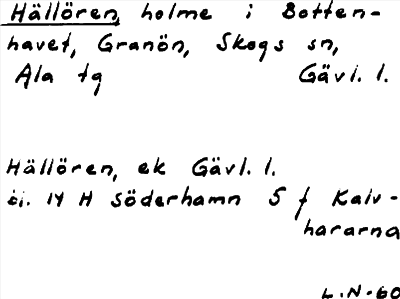 Hällören, holme i Botten-
havet, Granön, Skogs sn,
Ala tg Gävl. l.
Hällören, ek Gävl. l.
bl. 14 H Söderhamn 5 f Kalv-
hararna
L.N-60